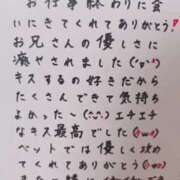 お仕事終わりに会
いにきてくれてありがとう!
お兄さんの優しさに
癒やされました(^o^)
キスするの好きだから
たくさんできて気持ち
よかった〜(^^)エチエチ
なキス最高でした(^ω^)
ベットでは優しく攻め
てくれてありがとう(